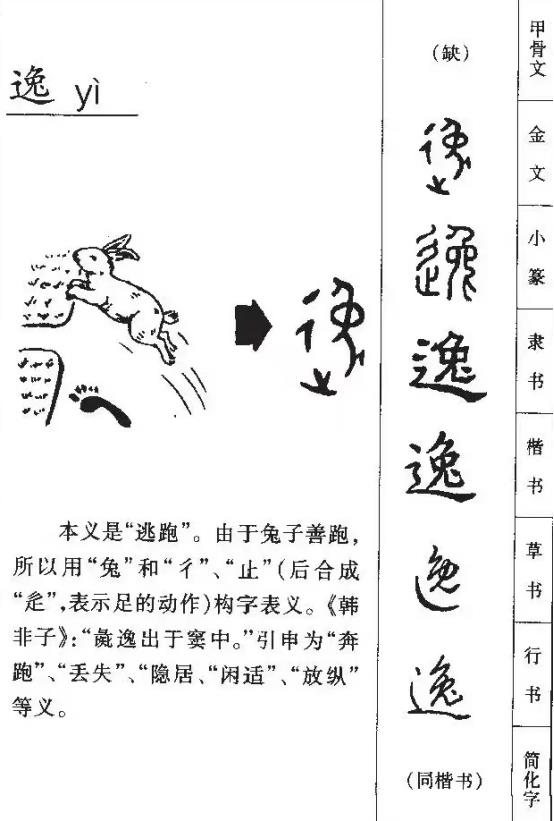 逸 yì
本义是“逃跑”。由于兔子善跑，
所以用“兔”和“彳”、“止”（后合成
“辵”，表示足的动作）构字表义。《韩
非子》：“彘逸出于窦中。”引申为“奔
跑”、“丢失”、“隐居、“闲适”、“放纵”
等义。
（缺）
甲骨文
金文
逸
小篆
逸
隶书
逸
楷书
逸
草书
逸
行书
（同楷书）
简化字